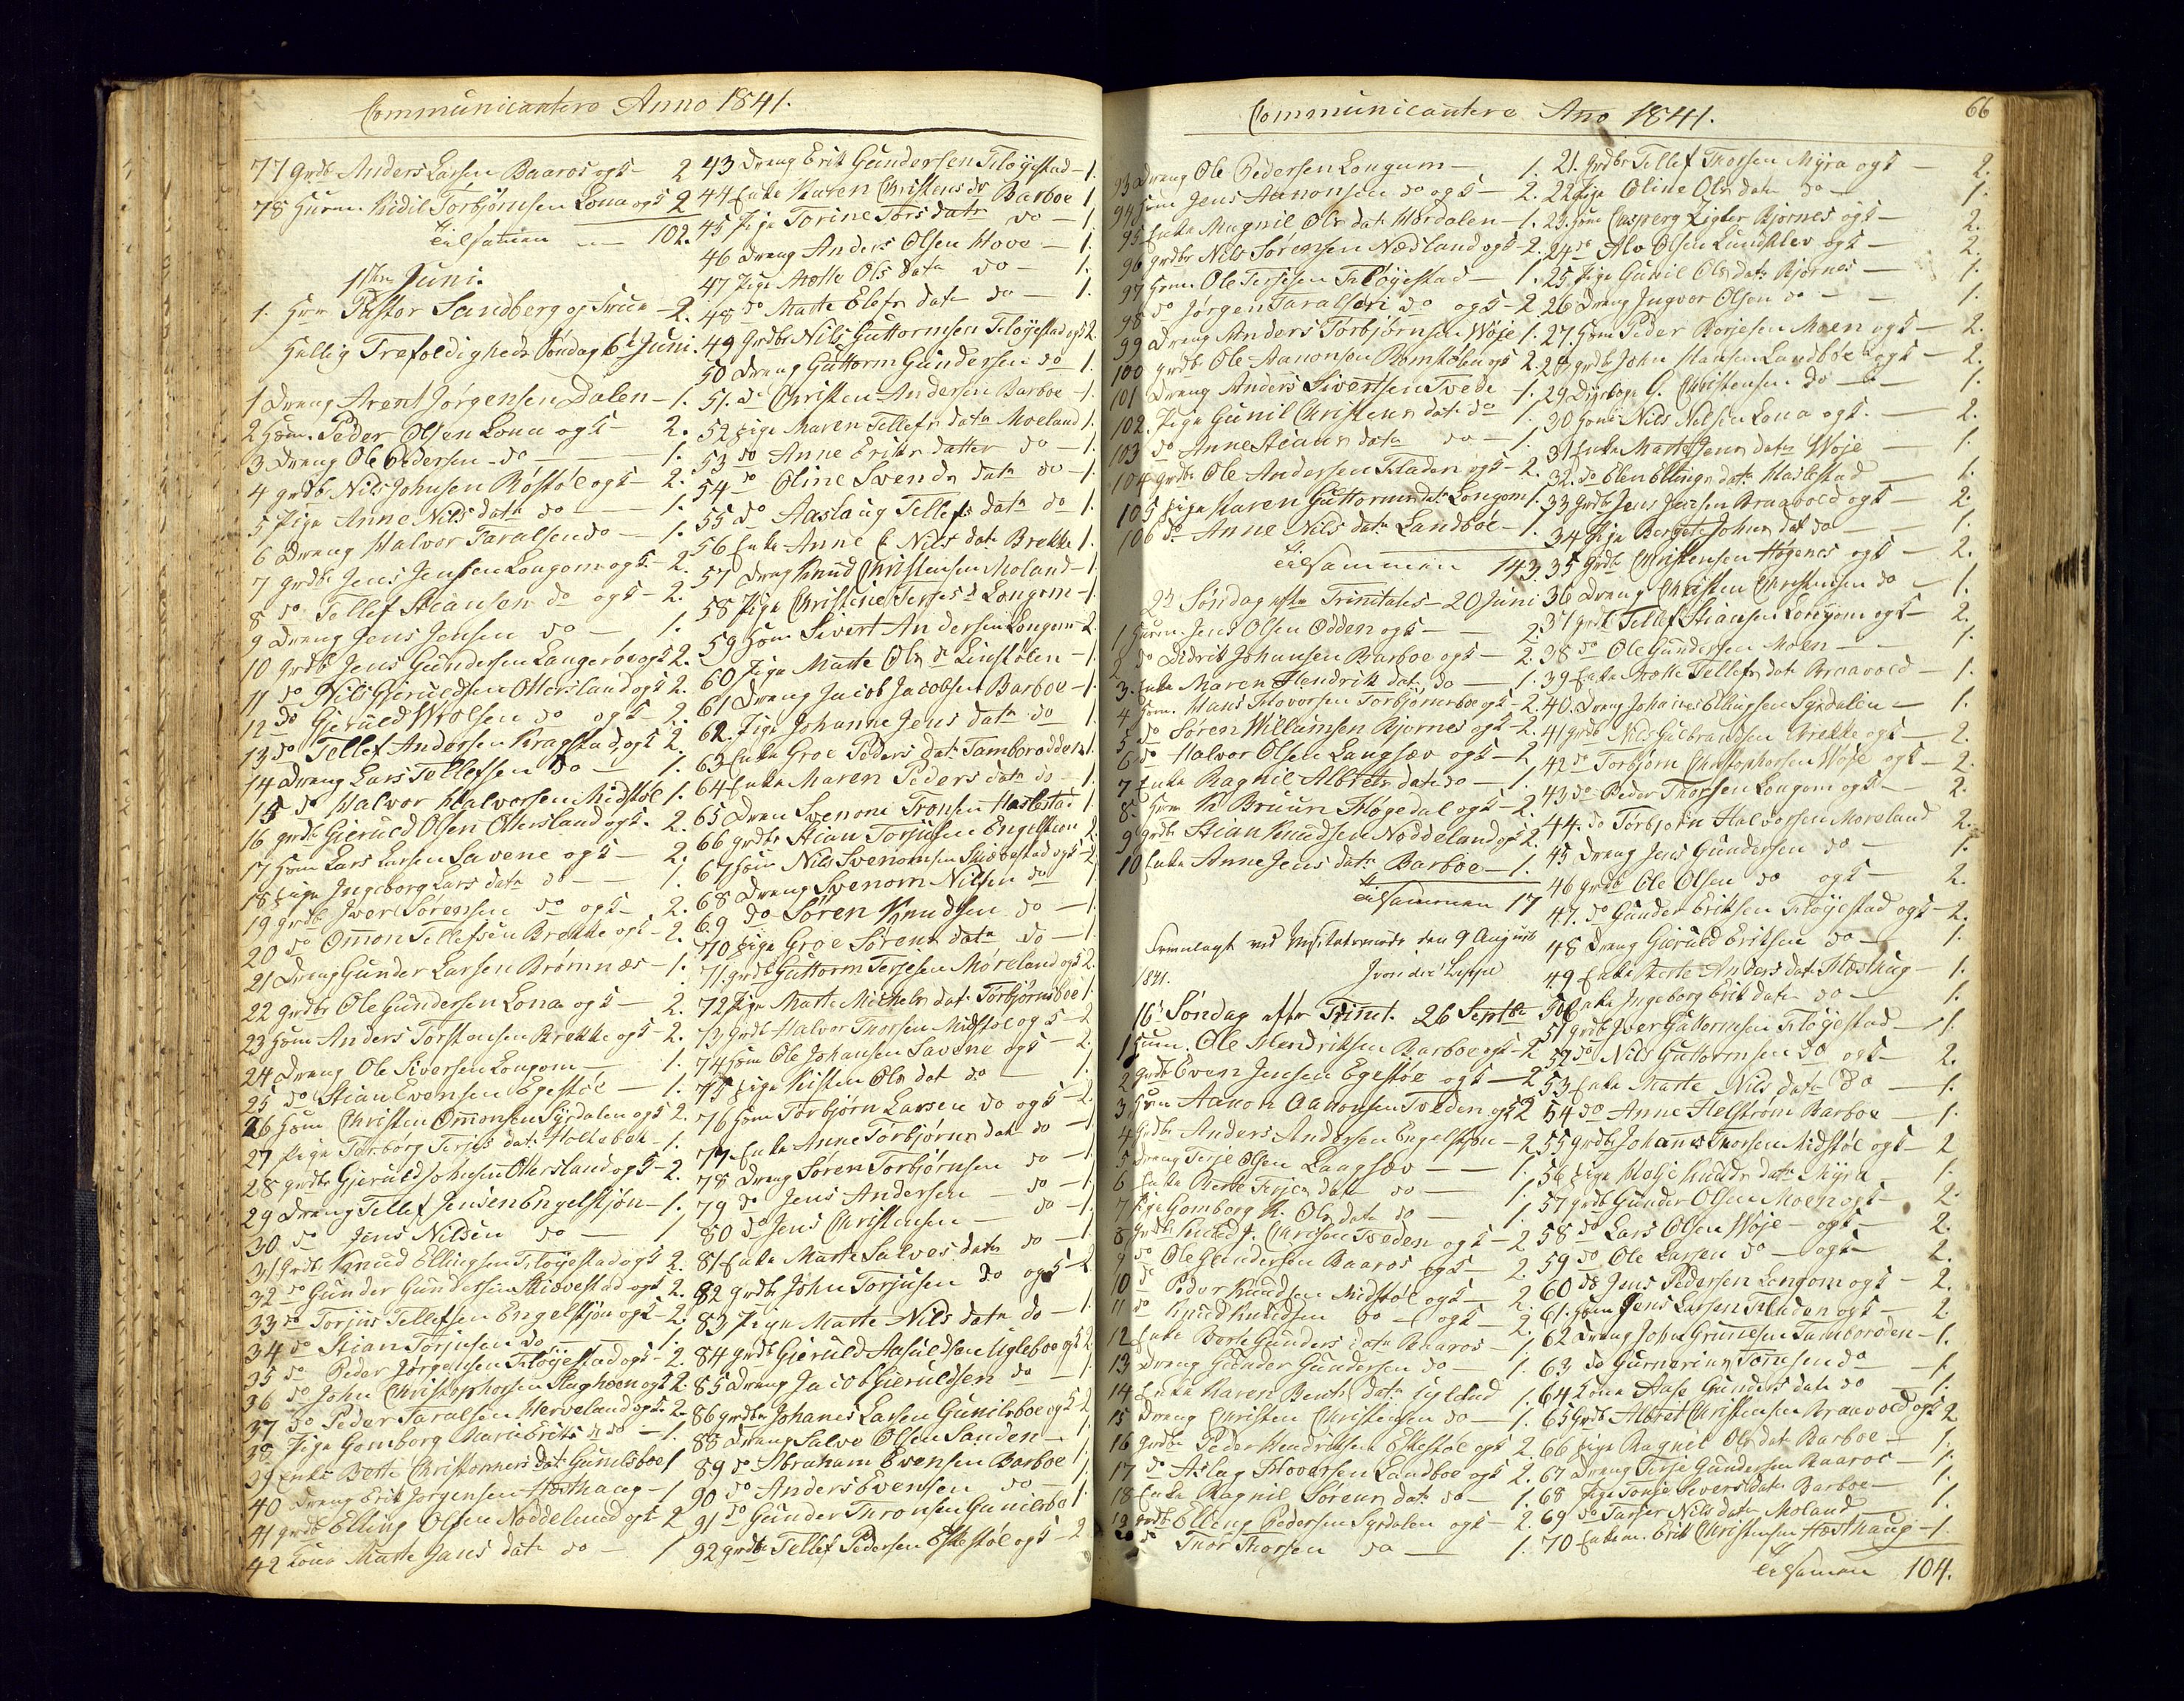 Communicantere Anno 1841.
77 grdb Anders Larsen Baaros ogK — 2
78 Huusm. Kidil Torbjørnsen Lona ogK 2
tilsamen — 102.
1ste Juni.
1. Hrr Pastor Sandberg og Frue — 2.
Hellig Trefoldigheds Søndag 6te Juni.
1 Dreng Arent Jørgensen Dalen — 1.
2 Huusm. Peder Olsen Lona ogK — 2.
3 Dreng Ole Pedersen do — 1.
4 grdb Nils Johnsen Røstøl ogK — 2.
5 Pige Anne Nils datr do — 1.
6 Dreng Halvor Taralsen do — 1.
7 grdb Jens Jensen Longom ogK — 2.
8 do Tellef Stiansen do ogK — 2.
9 Dreng Jens Jensen do — 1.
10 grdb Jens Gundersen Langerøe ogK 2.
11 do Nils Gjeruldsen Ottersland ogK 2.
12 do Gjeruld Wrolsen do ogK — 2.
13 do Tellef Andersen Kragstad ogK 2.
14 Dreng Lars Tellefsen do — 1.
15 do Halvor Halvorsen Midstøl 1.
16 grdb Gjeruld Olsen Ottersland ogK. 2.
17 Huusm Lars Larsen Savene ogK — 2.
18 Pige Ingeborg Lars datr do — 1.
19 grdb Iver Sørensen do ogK — 2.
20 do Omon Tellefsen Brekke ogK — 2.
21 Dreng Gunder Larsen Brømnes — 1.
22 grdbr Ole Gundersen Lona ogK — 2.
23 Huusm Anders Torstensen Brekke ogK — 2.
24 Dreng Ole Siversen Longom — 1.
25 do Stian Evensen Egestøl — 1.
26 Huusm Christen Omonsen Syrdalen ogK 2.
27 Pige Torborg Terjes datr Holtebek — 1.
28 grdbr Gjeruld Johnsen Ottersland ogK — 2.
29 Dreng Tellef Jensen Engelskjøn — 1.
30 do Jens Nilsen do — 1
31 grdb Knud Ellingsen Fløyestad ogK 2.
32 do Gunder Gundersen Skiævestad ogK 2.
33 do Torjus Tellefsen Engelskjøn ogK — 2.
34 do Stian Torjusen do — 1.
35 do Peder Jørgensen Fløyestad ogK — 2.
36 do John Christophersen ogK 2.
37 do Peder Taralsen Herveland ogK. 2.
38 Pige Gomborg Marie Eriks d. do — 1.
39 Enke Berte Christophers dat Gunilsboe 1
40 Dreng Erik Jørgensen Hæsthaug — 1
41 grdb Elling Olsen Noddeland ogK 2
42 Kona Marte Jans datr do — 1
43 Dreng Erik Gundersen Fløyestad — 1.
44 Enke Karen Christens dr Barboe 1.
45 Pige Torine Tors datr do — 1.
46 Dreng Anders Olsen Hove — 1.
47 Pige Aslle Ols datr do — 1.
48 do Marte Elefs datr do — 1.
49 grdbr Nils Guttormsen Fløyestad ogK 2.
50 Dreng Guttorm Gundersen do 1.
51. do Christen Andersen Barboe — 1.
52 Pige Maren Tellefs datr Moeland 1.
53 do Anne Eriks datter do — 1.
54 do Oline Svends datr do — 1.
55 do Aaslaug Tellefs datr do 1.
56 Enke Anne C Nils datr Brekke 1.
57 Dreng Knud Christensen Moland — 1.
58 Pige Christine Terjes d Longom — 1.
59 Huusm Sivert Andersen Longom — 2.
60 Pige Marte Ols d Linstølen — 1.
61 Dreng Jacob Jacobsen Barboe — 1.
62. Pige Johanne Jens datr do 1.
63 Enke Groe Peders datr Tamborodden 1.
64 Enke Maren Peders datr do — 1.
65 Dreng Svenom Tronsen Haslestad 1.
66 grdbr Stian Torjusen Engelskion 2.
67 Huusm Nils Svenomsen Skiævestad ogK — 2
68 Dreng Svenom Nilsen do 1.
69 do Søren Knudsen do — 1.
70 Pige Groe Sørens datr do — 1.
71. grdbr Guttorm Terjesen Moreland ogK 2.
72 Pige Marte Michels datr Torbjørnsboe 1.
73 grdb Halvor Thorsen Midstøl ogK — 2
74 Huusm Ole Johansen Savene ogK — 2.
75 Pige Kisten Ols dat do — 1.
76 Huusm Torbjørn Larsen do ogK — 2.
77 Enke Anne Torbjørns dat do — 1.
78 Dreng Søren Torbjørnsen do — 1.
79 do Jens Andersen do — 1.
80 do Jens Christensen — do — 1.
81 Enke Marte Salves datr do — 1.
82 grdbr John Torjusen do ogK — 2
83 Pige Marte Nils datr do — 1.
84 grdb Gieruld Aasuldsen Ugleboe ogK 2
85 Dreng Jacob Gieruldsen do — 1.
86 grdbr Johanes Larsen Gunilsboe ogK 2
88 Dreng Salve Olsen Sanden — 1.
89 do Abraham Evensen Barboe 1.
90 do Anders Evensen do — 1.
91 do Gunder Thronsen Gunilsbo 1.
92 grdbr Tellef Pedersen Eskestøl ogK — 2
Communicantere Ano 1841.
66
93 Dreng Ole Pedersen Longum — 1.
94 Huusm Jens Aanonsen do ogK — 2.
95 Enke Magnil Ols dat Hordalen — 1.
96 grdbr Nils Sørensen Nædland ogK — 2.
97 Huusm. Ole Terjesen Fløyestad — 1.
98 do Jørgen Taralsen do ogK — 2
99 Dreng Anders Torbjørnsen Woje 1.
100 grdb Ole Aanonsen ogK 2.
101 Dreng Anders Sivertsen Tvede — 1.
102. Pige Gunil Christens datr do 1.
103 do Anne Stians datr do — 1.
104 grdbr Ole Andersen Fladen ogK — 2.
105 Pige Karen Guttorms datr Longom 1.
106 do Anne Nils datr Landboe — 1.
tilsammen 143.
2den Søndag efter Trinitatis — 20 Juni
1 Huusm. Jens Olsen Odden ogK — 2.
2 do Didrik Johansen Barboe ogK — 2.
3. Enke Maren Hendriks dat do — 1.
4 Huusm. Hans Hovorsen Torbjørnsboe ogK — 2.
5 do Søren Willumsen Bjornes ogK — 2.
6 do Halvor Olsen Langsæv ogK — 2
7 Enke Ragnil Albrets datr do — 1.
8. Huusm K Bruun Fløgedal ogK — 2.
9 grdbr Stian Knudsen Noddeland ogK 2.
10 Enke Anne Jens datr Barboe — 1.
tilsammen 17
Fremlagt ved Visitatsmøde den 9 August
1841.
16de Søndag efter Trinit. 26 Septbr
1 Huusm. Ole Hendriksen Barboe ogK — 2
2 grdb Even Jensen Egestøl ogK — 2
3 Huusm Aanon Aanonsen Tveden ogK 2
4 grdbr Anders Andersen Engelskion — 2
5 Dreng Terje Olsen Laagsæv — 1.
6 Enke Berte Terjes datr do — 1.
7 Pige Gomborg K. Ols datr do — 1.
8 grdb Knud J. Chrisen Tveden ogK — 2
9 do Ole Gundersen Baaros ogK — 2.
10 do Peder Knudsen Midstøl ogK — 2.
11 do Knud Knudsen do — ogK — 2.
12 Enke Berte Gunders datr Baaros — 1.
13 Dreng Gunder Gundersen do — 1.
14 Enke Karen Bents datr 1.
15 Dreng Christen Christensen do — 1.
16 grdbr Peder Hendriksen Eskestøl ogK 2.
17 do Aslag Hovorsen Landboe ogK 2.
18 Enke Ragnil Sørens dat do — 1.
19 grdb Elling Pedersen Syrdalen ogK — 2.
20 do Thor Thorsen do — 1.
21. grdbr Tellef Thorsen Myra ogK — 2.
22 Pige Oline Ols datr do — 1.
23. Huusm Casperg Ligter Bjornes ogK — 2.
24 do Alv Olsen Lundklev ogK — 2.
25 Pige Gunil Ols datr Bjornes — 1.
26 Dreng Ingvor Olsen do — 1.
27. Huusm Peder Borjesen Moen ogK — 2.
28 grdb John Hansen Landboe ogK — 2.
29 G. Christensen do — 1.
30 Huusm Nils Nilsen Lona ogK. — 2.
31 Enke Marte Jens datr Woje — 1.
32. do Elen Ellings datr Haslestad — 1.
33 grdb Jens Jensen Braavold ogK — 2.
34 Pige Bergete Johns dat do — 1.
35 grdb Christensen Høgenes ogK — 2.
36 Dreng Christen Christensen do — 1.
37 grdb Tellef Stiansen Longom ogK — 2.
38 do Ole Gundersen Moen — 1.
39 Enke Aslle Tellefs dat Braavold — 1.
40. Dreng Johanes Ellingsen Syrdalen — 1.
41 grdb Nils Gulbrandsen Brekke ogK — 2.
42 do Torbjørn Christophersen Woje ogK — 2.
43 do Peder Thorsen Longom ogK — 2.
44. do Torbjørn Halvorsen Moreland 2.
45 Dreng Jens Gundersen do — 1.
46 grdb Ole Olsen do ogK — 2.
47. do Gunder Eriksen Fløyestad ogK — 2.
48 Dreng Gjeruld Eriksen do — 1.
49 Enke Anders dat Hæsthug — 1.
50 Enke Ingeborg Erik datr do — 1.
51 grdb Iver Guttormsen Fløyestad — 1.
52 do Nils Guttormsen do ogK — 2.
53 Enke Marte Nils datr do — 1.
54 do Anne Helstrøm Barboe — 1.
55 grdbr Johanes Thorsen Midstøl ogK — 2
56 Pige Knuds datr Myra — 1.
57 grdb Gunder Olsen Moen ogK — 2.
58 do Lars Olsen Woje — ogK — 2.
59 do Ole Larsen do — ogK — 2.
60 do Jens Pedersen Longom ogK — 2.
61. Huusm Jens Larsen Fladen ogK — 2.
62 Dreng John Grunesen Tamboroden — 1.
63 do Gurnerius Tomesen do — 1.
64 Kona Aase Gunders datr do — 1.
65 grdb Albret Christensen Braavold ogK 2
66 Pige Ragnil Ols dat Barboe — 1.
67 Dreng Terje Gundersen Baaros — 1.
68 Pige Tomine Severs datr Barboe — 1.
69 do Nils datr Moland — 1.
70 Enkem. Erik Christensen Hæsthaug — 1.
tilsamen 104.